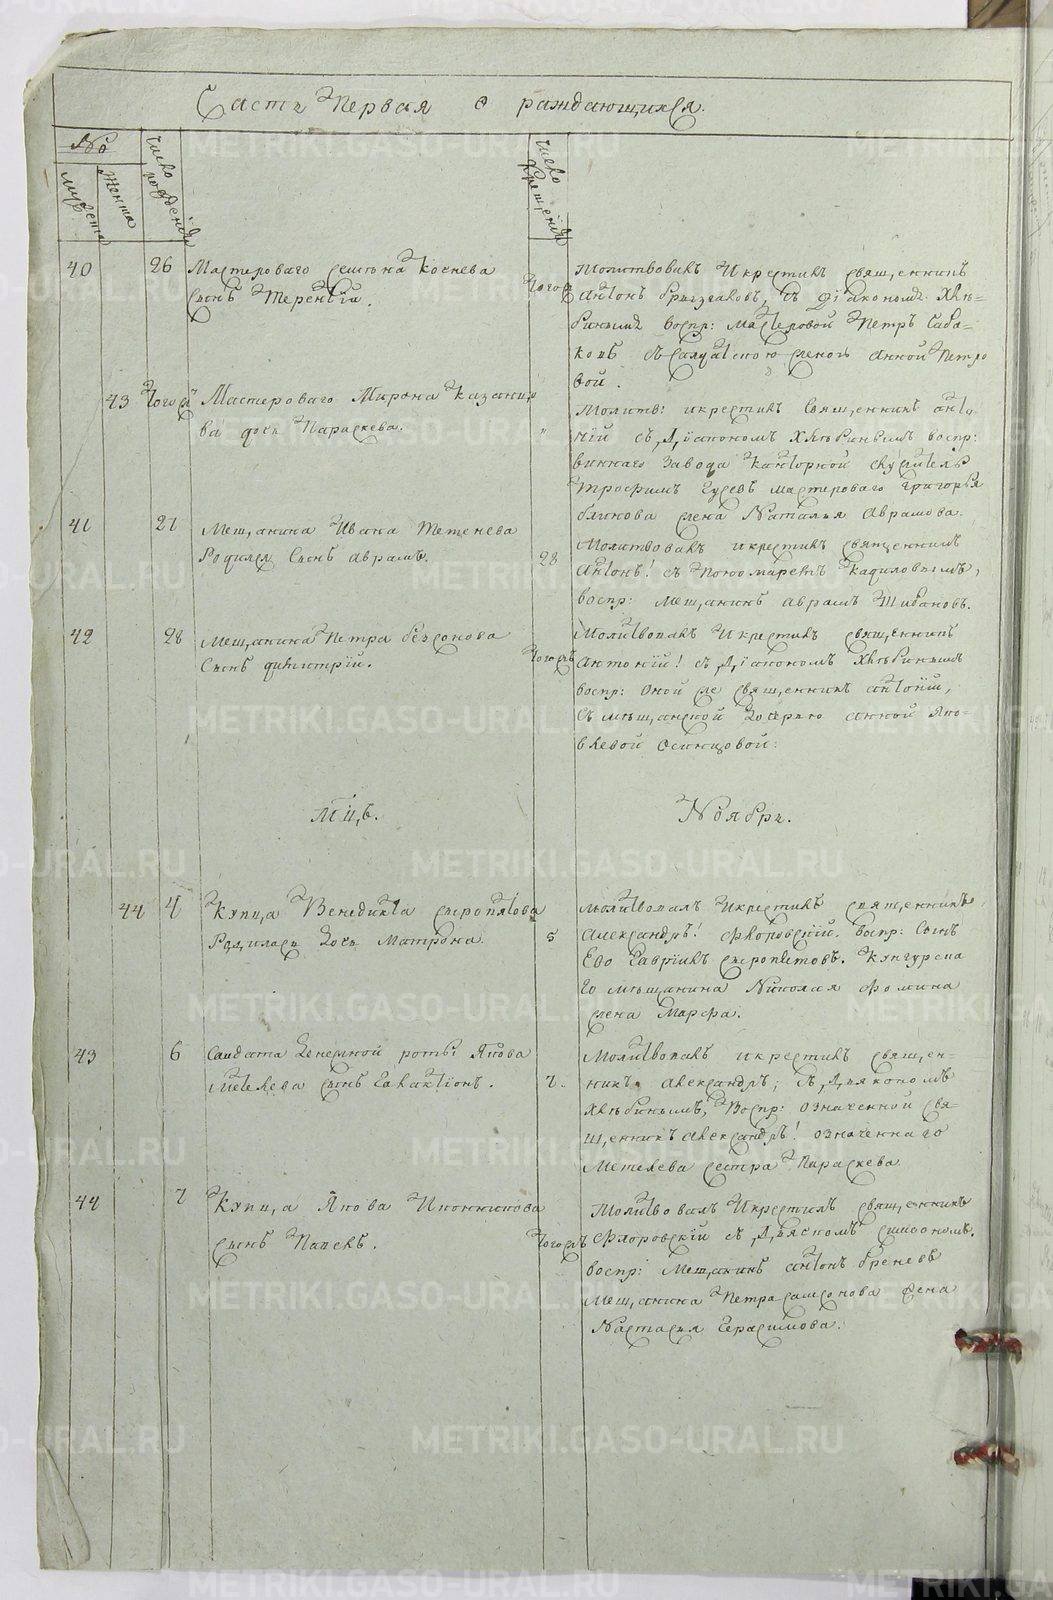 Часть Первая о раждающихся.
No
мужеска
женска
число рожденія
число крещенія
40 26 Мастероваго Семена
сынъ Терентій.
тогожъ
Молитвовалъ и крестилъ священникъ
Антонъ съ діакономъ Хлѣ=
бинымъ воспр: мастеровой Петръ Саба=
ковъ съ женою Анной Петро
вой.
43 тогожъ Мастероваго Мирона Казанц
ва дочь Параскева.
"
Молитв: и крестилъ Священникъ Анто
ній съ Діакономъ Хлѣбинымъ воспр:
виннаго завода канторной служитель
Трофимъ Гусевъ мастероваго Григорья
Блинова жена Наталья Аврамова.
41 27 Мещанина Ивана Тетенева
Родился сынъ Аврамъ.
28
Молитвовалъ и крестилъ священникъ
Антонъ! съ пономаремъ Кадиловымъ,
воспр: мещанинъ Аврамъ Шибановъ.
42 28 Мещанина Петра Безсонова
сынъ Димитрій.
тогожъ
Молитвовалъ и крестилъ священникъ
Антоній! съ Діакономъ Хлѣбинымъ
воспр: оной же священникъ Антоній,
съ мѣщанской дочерью Анной Яко=
влевой Осинцовой:
М҃ц,ъ.
Ноябрь.
44 4 Купца Венедикта Сыропятова
Родилась дочь Матрона.
5
Молитвовалъ и крестилъ священникъ
Александръ! Флоровскій. воспр: сынъ
Его Гавріилъ Сыропятовъ. Кунгурска
го мѣщанина Николая Фомина
жена Марфа.
43 6 Салдата Денежной роты Якова
Метелева сынъ Галактіонъ.
7.
Молитвовалъ и крестилъ священ=
никъ Александръ; съ Дьякономъ
Хлѣбинымъ, воспр: означенной свя=
щенникъ Александръ! означеннаго
Метелева сестра Параскева
44 7 Купца Якова
сынъ Павелъ.
тогожъ
Молитвовалъ и крестилъ священникъ
Флоровскій съ
воспр: Мещанинъ Антонъ
Мещанина Петра Самсонова жена
Настасья Герасимова.
METRIKI.GASO-URAL.RU